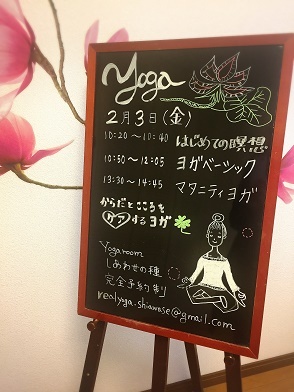 Yoga
2月3日(金)
10:20〜10:40 はじめての瞑想
10:50〜12:05 ヨガベーシック
13:30〜14:45 マタニティヨガ
からだとこころを
ケアするヨガ
Yogaroom
しあわせの種
完全予約制
realyoga.shiawase@gmail.com